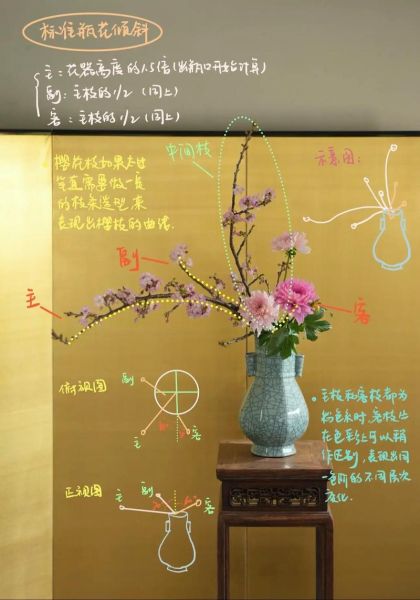 标准瓶花倾斜
主：花器高度的1.5倍（出瓶口开始计算）
副：主枝的1/2（同上）
客：主枝的1/2（同上）
中间枝
示意图：
樱花枝如果太过
笔直需要做一定
的枝条造型，来
表现出樱枝的曲线.
副
主
客
俯视图
副
主
客
主枝和客枝都为
粉色系时，客枝
在色彩上可以稍
作区别，表现出同
一色阶的不同层次
变化.
正视图
主
副
客